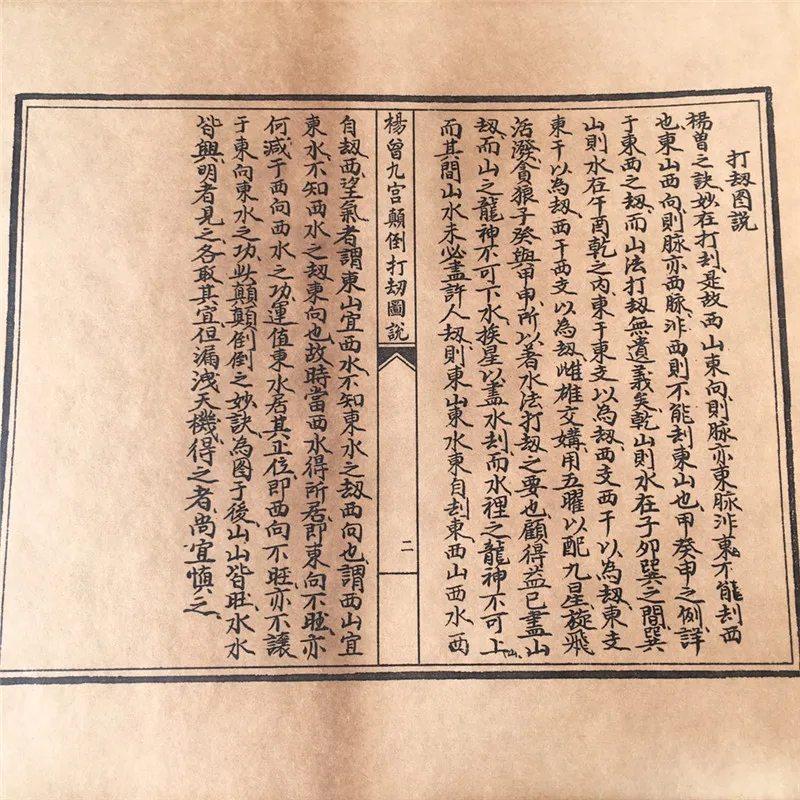 打刼图説
楊曾之訣、妙在打刦、是故西山東向、則脉亦東脉、非東不能刦西
也、東山西向、則脉亦西脉、非西則不能刦東山也、甲癸申之例、詳
于東西之刼、而山法打刼無遺義矣、乾山則水在子夘巽之間、巽
山則水在午酉乾之内、東干東支以為刼、西支西干以為刼、東支
東干以為刼、西干西支以為刼、雌雄交媾、用五曜以配九星、旋飛
活潑、貪狼子癸與甲申、所以著水法打刼之要也、顧得益已盡山
刼、而山之龍神不可下水、挨星以盡水刦、而水裡之龍神不可上山、
而其間山水未必盡許人刼、則東山東水東自刦東、西山西水西
楊曾九宫顛倒打刼圖説
二
自刼西、望氣者謂東山宜西水、不知東水之刼西向也、謂西山宜
東水、不知西水之刼東向也、故時當西水得所居、即東向不旺、亦
何減于西向西水之功、運值東水居其正位、即西向不旺、亦不讓
于東向東水之功、此顛顛倒倒之妙訣、為图于後、山山皆旺、水水
皆興、明者見之、各取其宜、但漏洩天機、得之者、尚宜慎之、